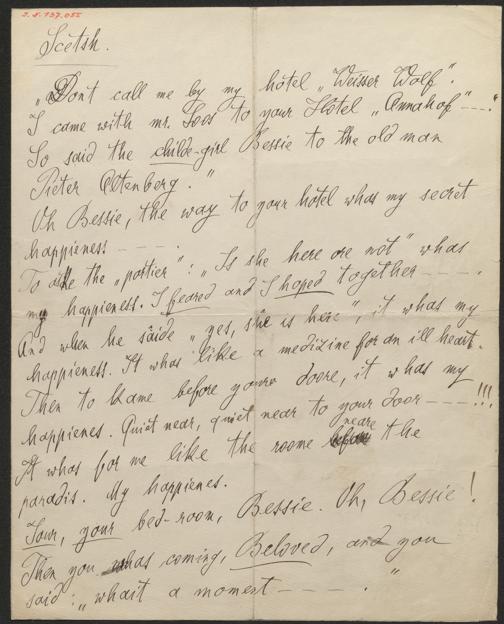 2.8.137.055
Scetsh.
„Don't call me by my hôtel „Weisser Wolf".
I came with mr. Loos to your Hôtel „Annahof" – – –."
So said the childe-girl Bessie to the old man
Pieter Altenberg."
Oh Bessie, the way to your hôtel whas my secret
happieness – – – –.
To aske the „portier": „Is she here ore not" whas
my happieness. I feared and I hoped together – – – –.
And when he saide „yes, she is here", it whas my
happieness. It whas like a medizine for an ill heart.
Then to kame before youre doore, it whas my
happienes. Quiet near, quiet near to your door – – –!!!
It whas for me like the roome neare the
paradis. My happienes.
Your, your bed-room, Bessie. Oh, Bessie!
Then you whas coming, Beloved, and you
said: „whait a moment – – – –."